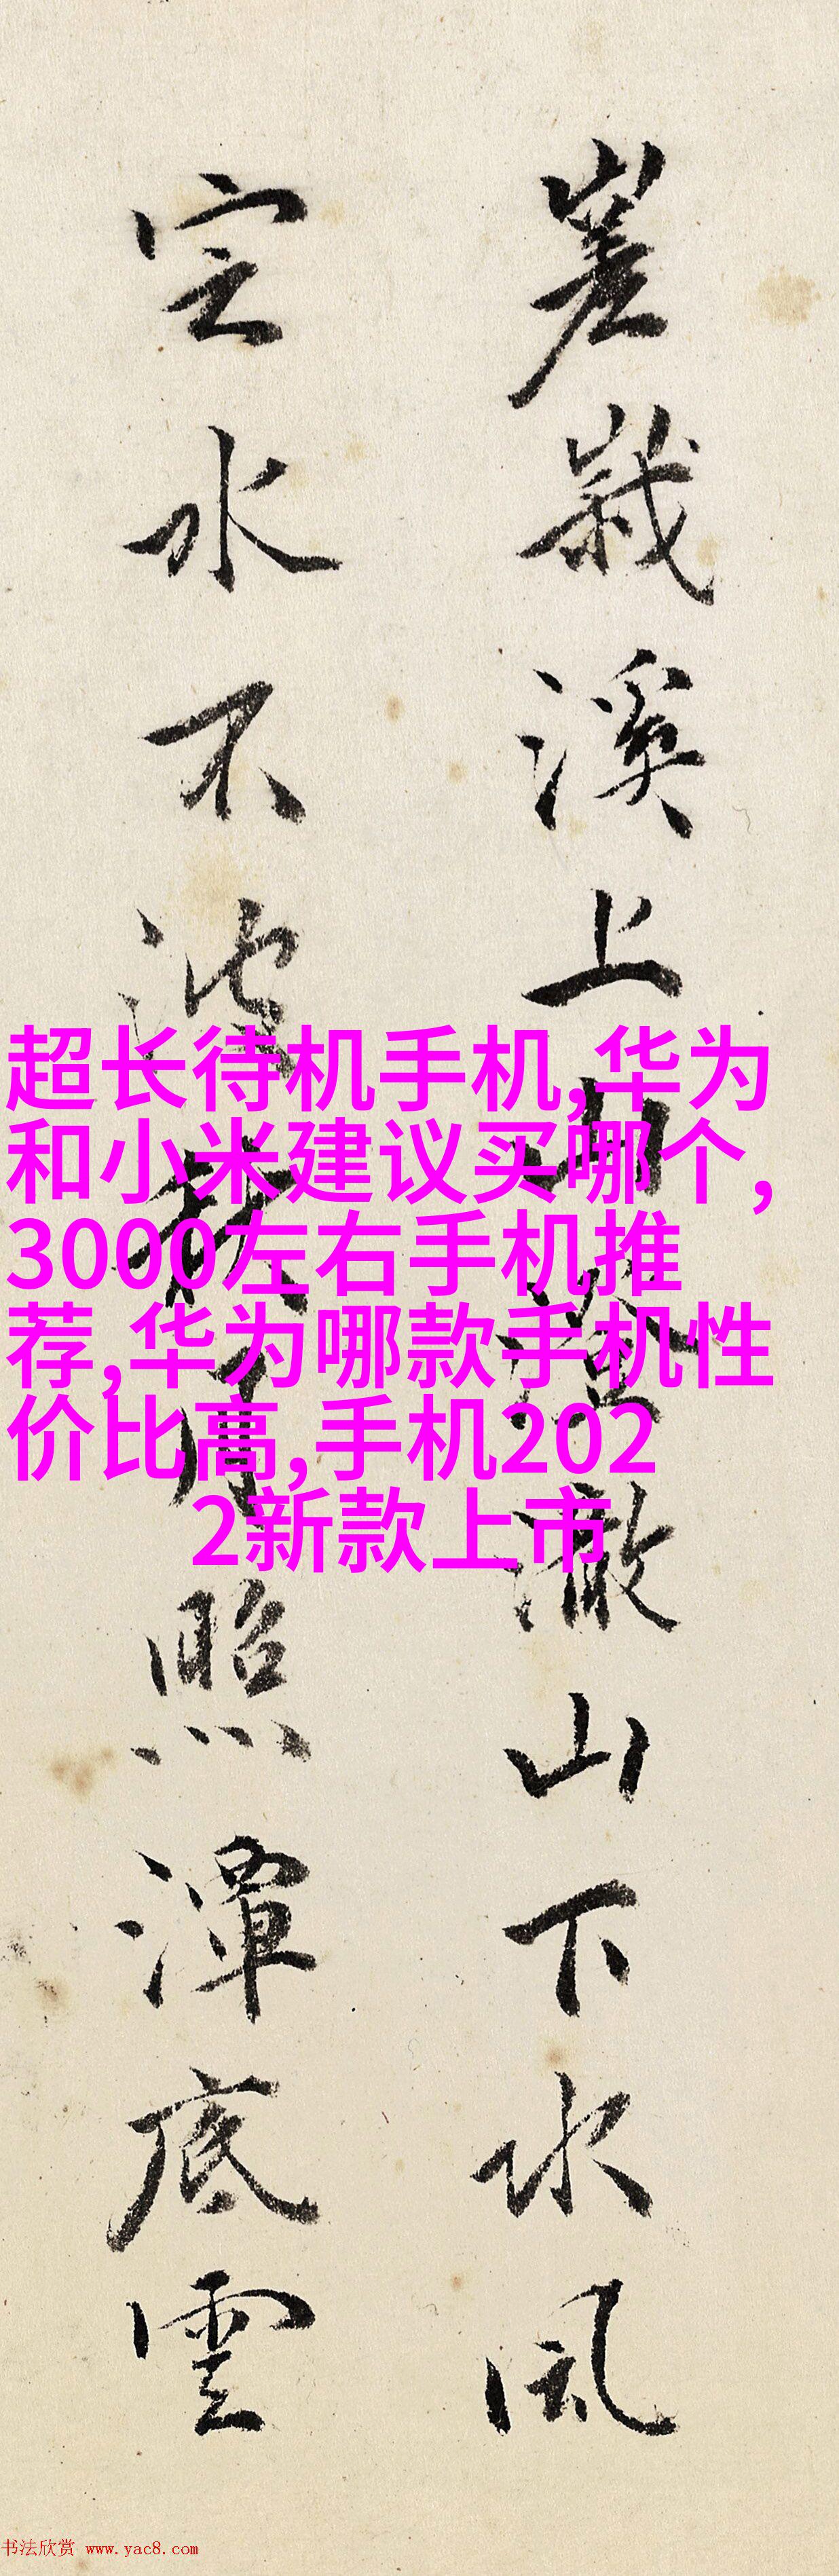 嵳峩溪上山澄澈山下水風
定水不月照潭底雲
超长待机手机,华为
和小米建议买哪个,
3000左右手机推
荐,华为哪款手机性
价比高,手机202
2新款上市
书法欣赏 www.yac8.com